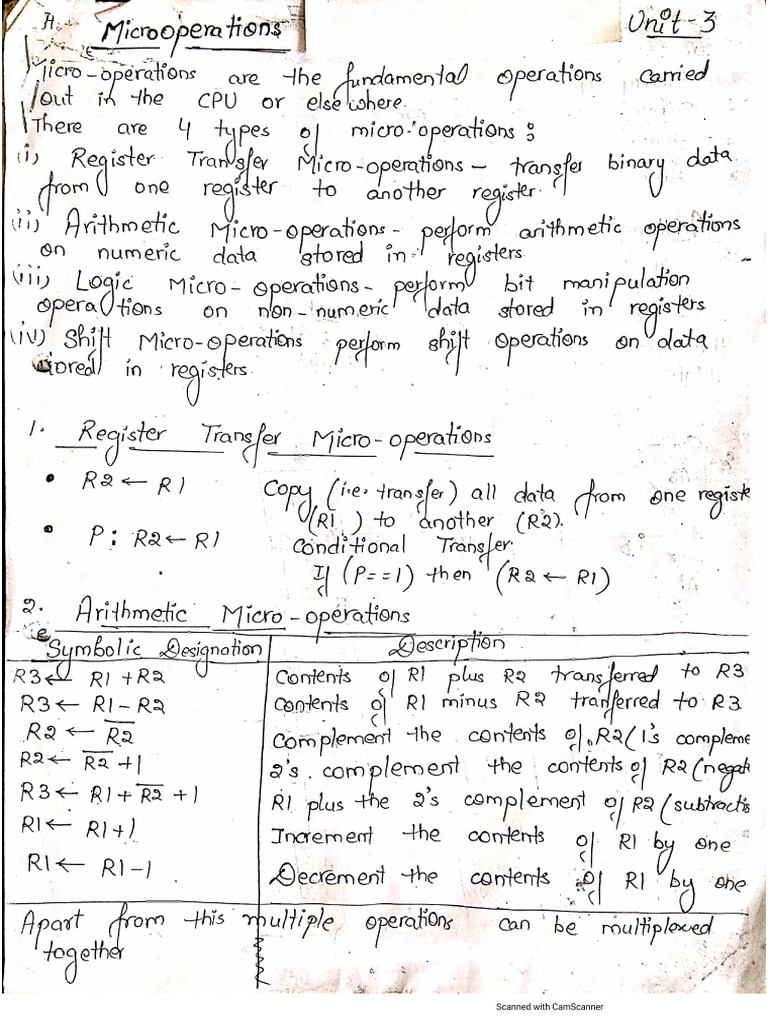 Microoperations
Unit-3
Micro-operations are the fundamental operations carried
out in the CPU or elsewhere.
There are 4 types of micro-operations :
(i) Register Transfer Micro-operations - transfer binary data
from one register to another register.
(ii) Arithmetic Micro-operations - perform arithmetic operations
on numeric data stored in registers
(iii) Logic Micro-operations - perform bit manipulation
operations on non-numeric data stored in registers
(iv) Shift Micro-operations perform shift operations on data
stored in registers.
1. Register Transfer Micro-operations
• R2 ← R1 Copy (i.e. transfer) all data from one registe
(R1) to another (R2).
• P : R2 ← R1 Conditional Transfer.
If (P==1) then (R2 ← R1)
2. Arithmetic Micro-operations
Symbolic Designation Description
R3 ← R1 + R2 Contents of R1 plus R2 transferred to R3
R3 ← R1 - R2 Contents of R1 minus R2 tranferred to R3
R2 ← R̅2̅ Complement the contents of R2 (1's compleme
R2 ← R̅2̅ + 1 2's complement the contents of R2 (negati
R3 ← R1 + R̅2̅ + 1 R1 plus the 2's complement of R2 (subtractio
R1 ← R1 + 1 Increment the contents of R1 by one
R1 ← R1 - 1 Decrement the contents of R1 by one
Apart from this multiple operations can be multiplexed
together
Scanned with CamScanner